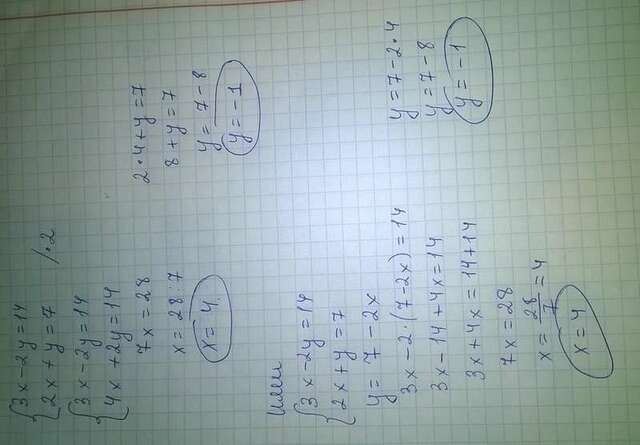 3x-2y=14
2x+y=7 /·2
3x-2y=14
4x+2y=14
7x=28
x=28:7
x=4
2·4+y=7
8+y=7
y=7-8
y=-1
Или
3x-2y=14
2x+y=7
y=7-2x
3x-2·(7-2x)=14
3x-14+4x=14
3x+4x=14+14
7x=28
x=28/7=4
x=4
y=7-2·4
y=7-8
y=-1